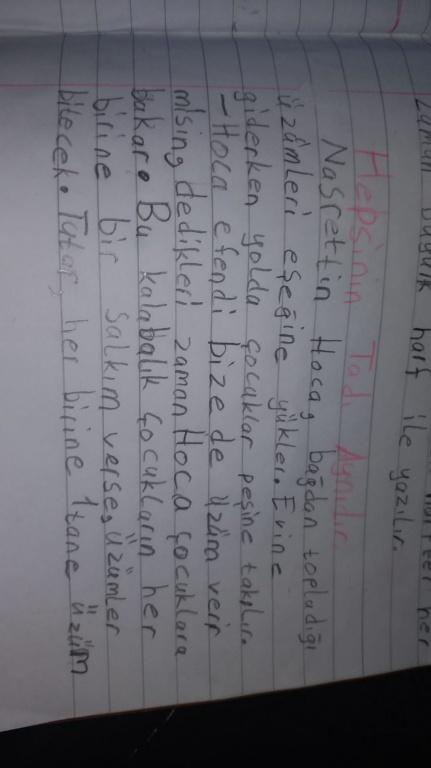 zaman büyük harf ile yazılır.
Hepsinin Tadı Aynıdır.
Nasrettin Hoca, bağdan topladığı
üzümleri eşeğine yükler. Evine
giderken yolda çocuklar peşine takılır.
- Hoca efendi bize de üzüm verir
mising dedikleri zaman Hoca çocuklara
bakar. Bu kalabalık çocukların her
birine bir salkım verse, üzümler
bitecek. Tutar, her birine 1 tane üzüm